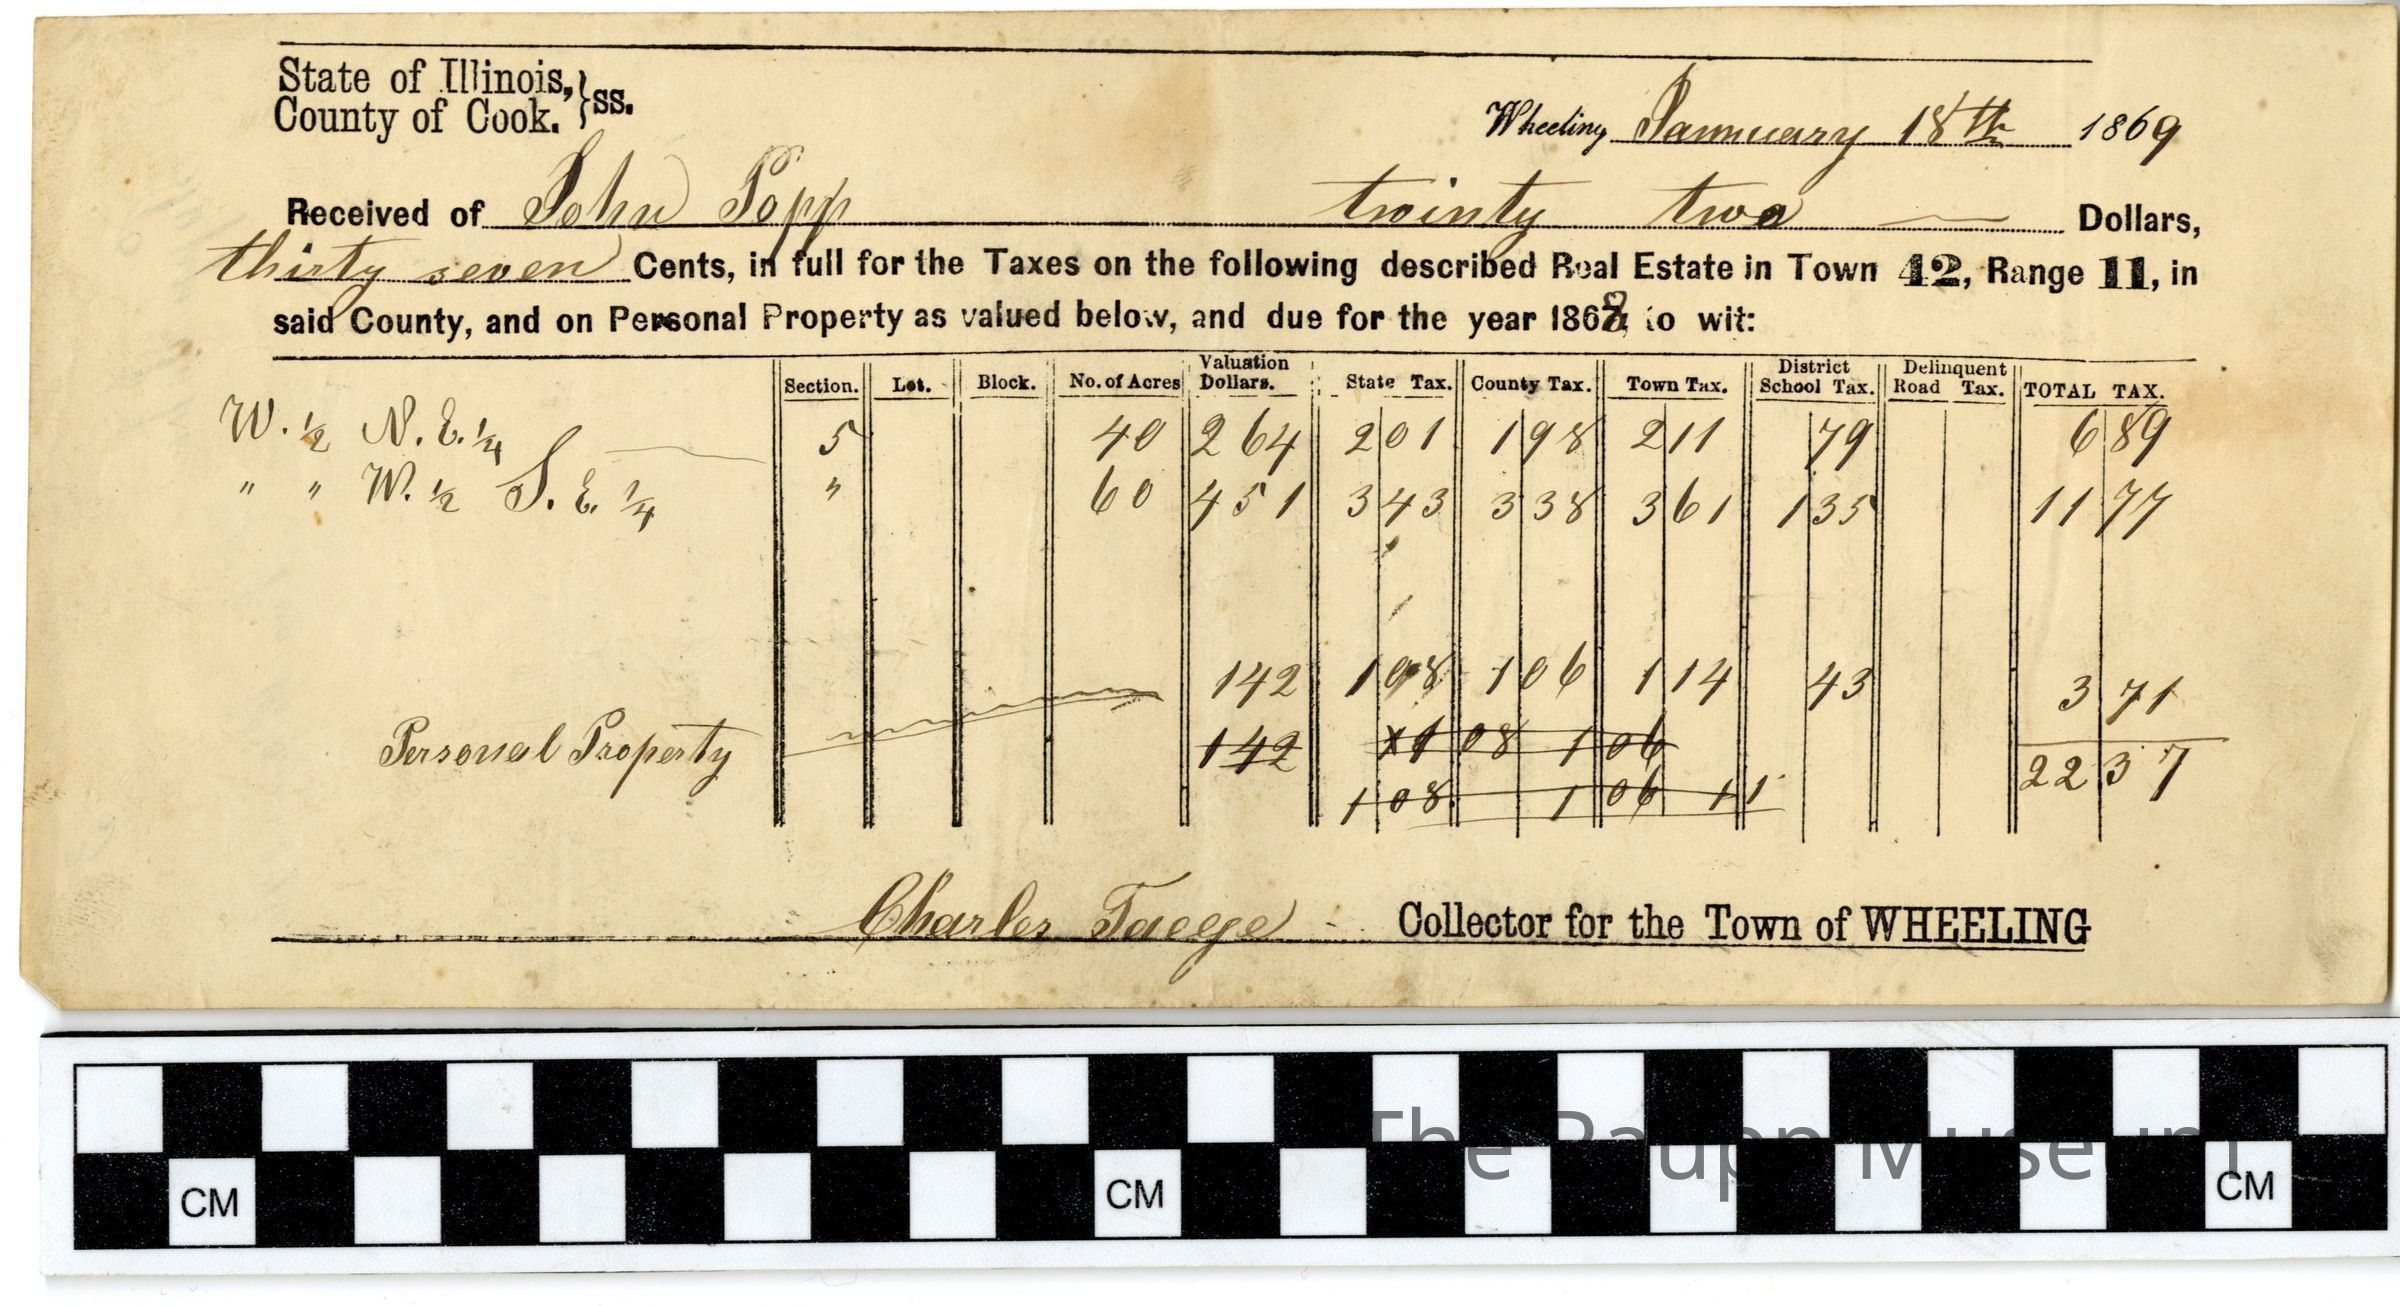 State of Illinois, } ss.
County of Cook.
Wheeling Jannuary 18th 1869
Received of John Popp twinty two Dollars,
thirty seven Cents, in full for the Taxes on the following described Real Estate in Town 42, Range 11, in
said County, and on Personal Property as valued below, and due for the year 1868, to wit:
Section. Lot. Block. No. of Acres Valuation Dollars. State Tax. County Tax. Town Tax. District School Tax. Delinquent Road Tax. TOTAL TAX.
W. 1/2 N. E. 1/4 5 40 264 2 01 1 98 2 11 79 6 89
" " W. 1/2 S. E. 1/4 " 60 451 3 43 3 38 3 61 1 35 11 77
142 1 08 1 06 1 14 43 3 71
Personal Property 142 1 08 1 06 22 37
1 08 1 06 1 1
Charles Taege Collector for the Town of WHEELING
The Raupp Museum
CM CM CM